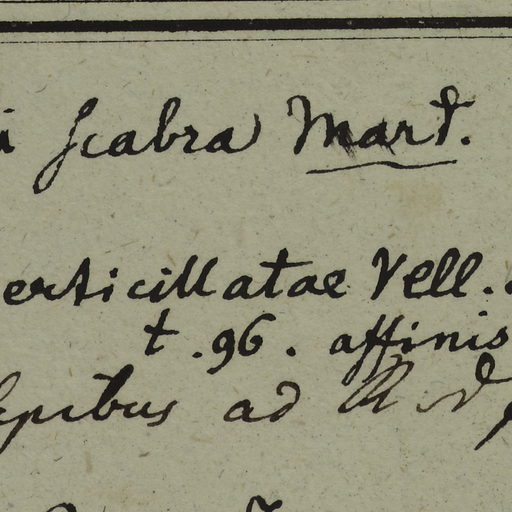 scabra Mart.
erticillatae Vell.
t. 96. affinis
sepibus ad R. d